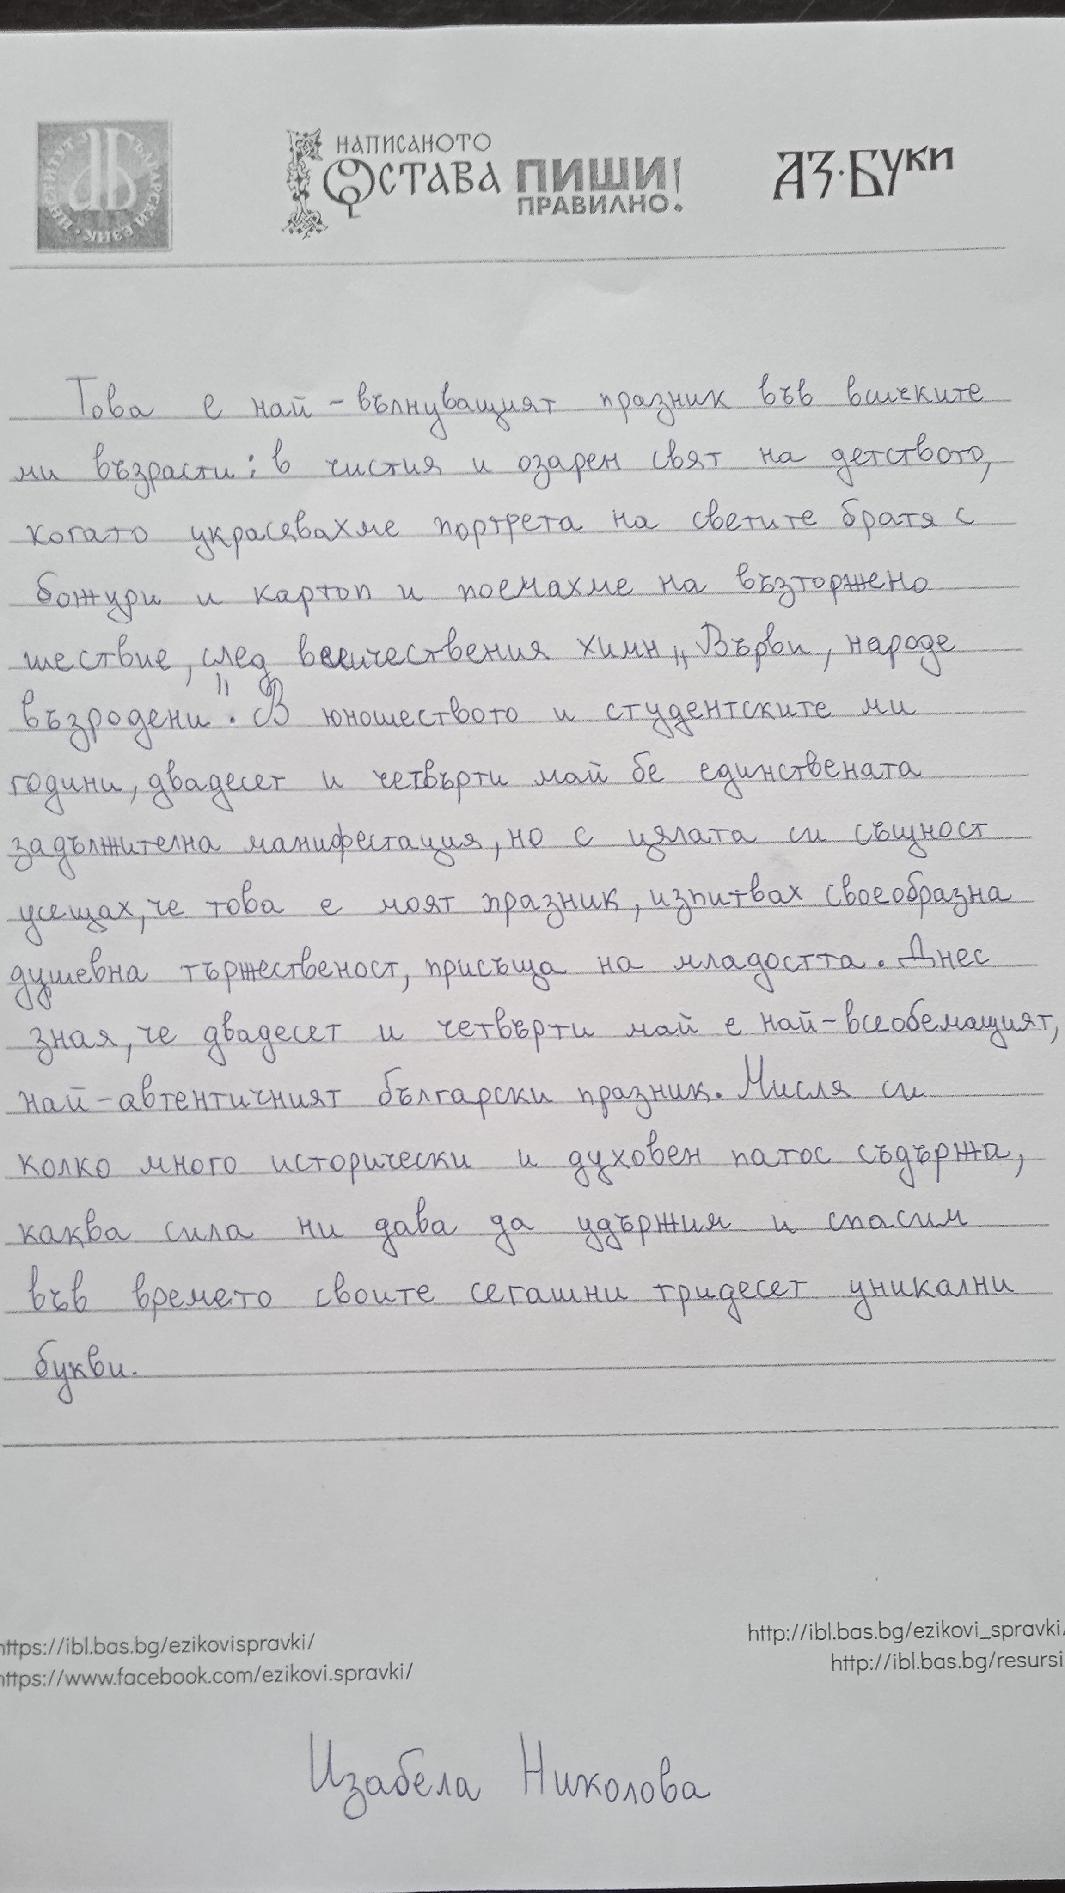 ИНСТИТУТ ЗА БЪЛГАРСКИ ЕЗИК
НАПИСАНОТО
ОСТАВА
ПИШИ!
ПРАВИЛНО.
АЗ·БУКИ
Това е най-вълнуващият празник във всичките
ми възрасти: в чистия и озарен свят на детството,
когато украсявахме портрета на светите братя с
божури и картоп и поемахме на възторжено
шествие, след величествения химн „Върви, народе
възродени". В юношеството и студентските ми
години, двадесет и четвърти май бе единствената
задължителна манифестация, но с цялата си същност
усещах, че това е моят празник, изпитвах своеобразна
душевна тържественост, присъща на младостта. Днес
зная, че двадесет и четвърти май е най-всеобемащият,
най-автентичният български празник. Мисля си
колко много исторически и духовен патос съдържа,
каква сила ни дава да удържим и спасим
във времето своите сегашни тридесет уникални
букви.
https://ibl.bas.bg/ezikovispravki/
https://www.facebook.com/ezikovi.spravki/
http://ibl.bas.bg/ezikovi_spravki/
http://ibl.bas.bg/resursi
Изабела Николова